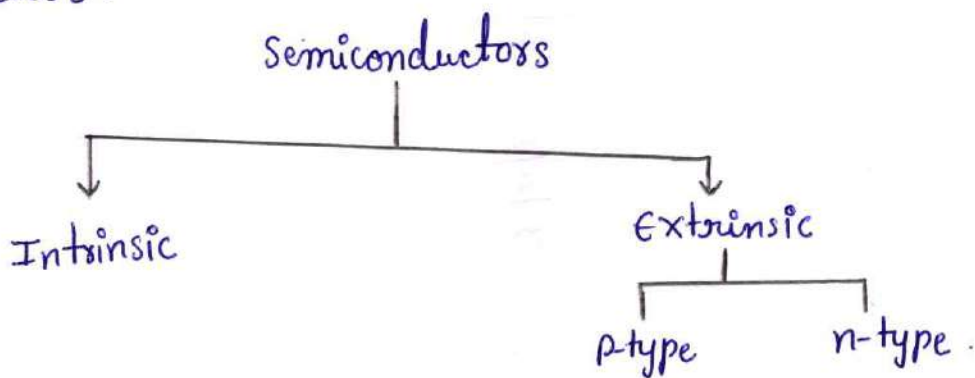 Semiconductors
Intrinsic
Extrinsic
p-type n-type.